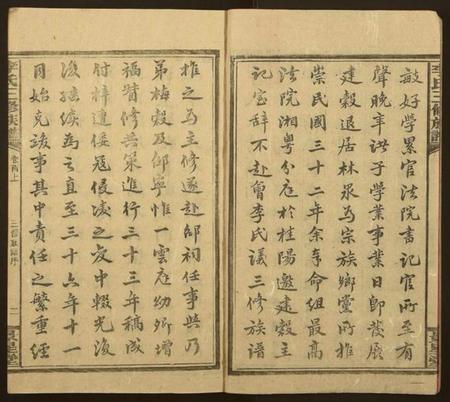 敏好學累官法院書記官所至有
聲晚年洪子學業事業日即發展
建穀退居林泉為宗族鄉黨所推
崇民國三十二年余奉命組最高
法院湘粵分庭於桂陽邀建穀主
記室辭不赴會李氏議三修族譜
推之為主修遂赴郡祠任事與乃
弟梅穀及郡寧惟一雲庭幼卿增
福贊修共策進行三十三年稿成
付梓遭倭寇侵凌之後中輟光復
後繼續為之直至三十六年十一
月始克竣事其中責任之繁重經
李氏三修族譜
卷首上
三修族譜序
二